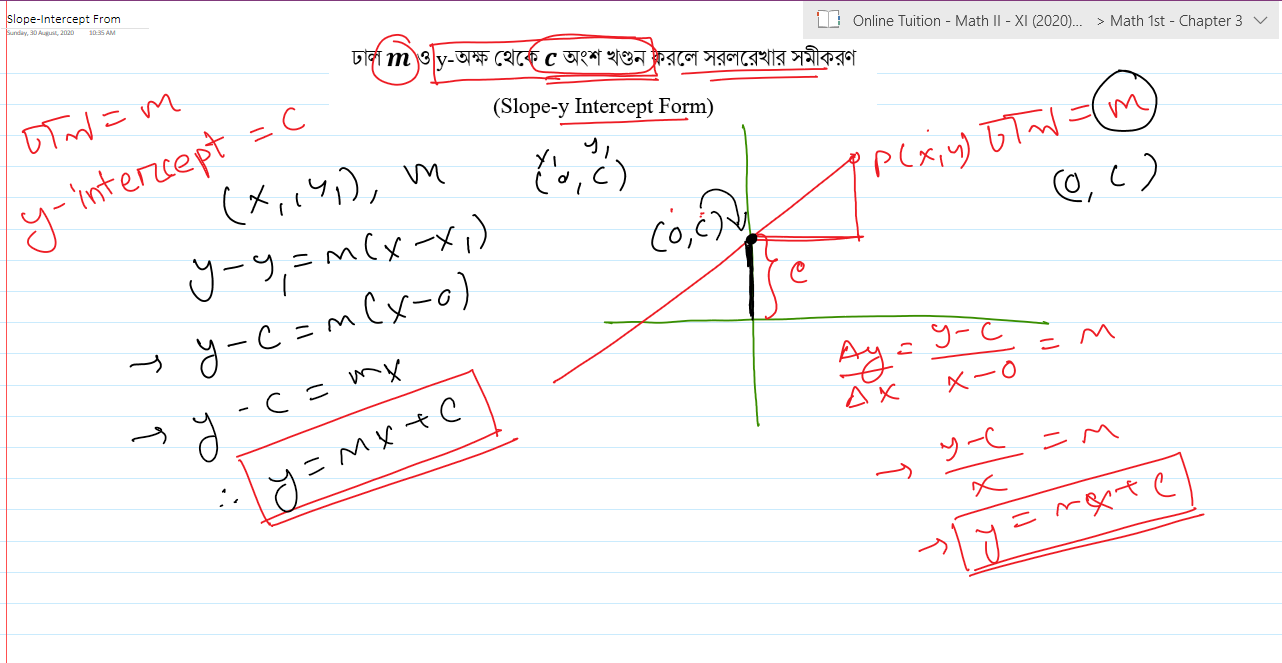 Slope-Intercept From
Sunday, 30 August, 2020 10:35 AM
Online Tuition - Math II - XI (2020)... > Math 1st - Chapter 3
ঢাল m ও y-অক্ষ থেকে c অংশ খণ্ডন করলে সরলরেখার সমীকরণ
(Slope-y Intercept Form)
ঢাল = m
y-intercept = c
(x₁, y₁), m
y - y₁ = m(x - x₁)
→ y - c = m(x - 0)
→ y - c = mx
∴ y = mx + c
x₁ y₁
(0, c)
(0, c)
c
P(x, y) ঢাল = m
(0, c)
Δy/Δx = y-c/x-0 = m
→ y-c/x = m
→ y = mx + c